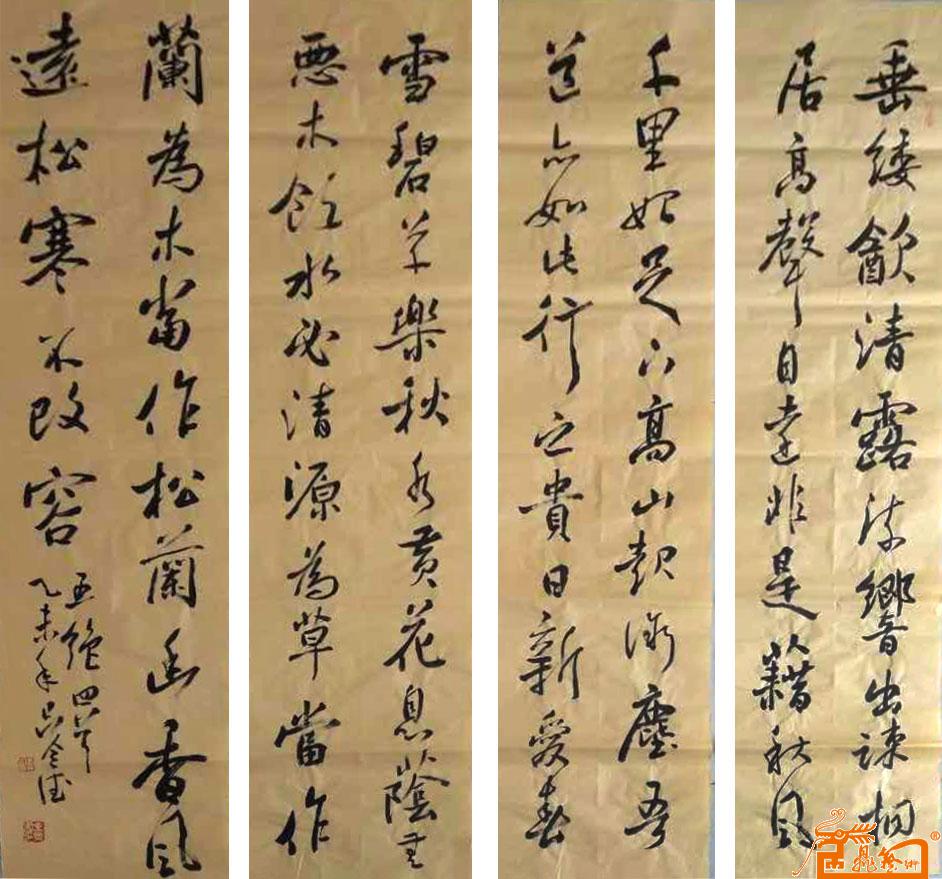 垂緌飲清露流響出疎桐
居高聲自遠非是藉秋風
千里始足下高山起微塵吾
道亦如此行之貴日新愛春
雪碧草樂秋水黃花息蔭無
惡木飲水必清源為草當作
蘭為木當作松蘭幽香風
遠松寒不改容
五絕四首
乙未年